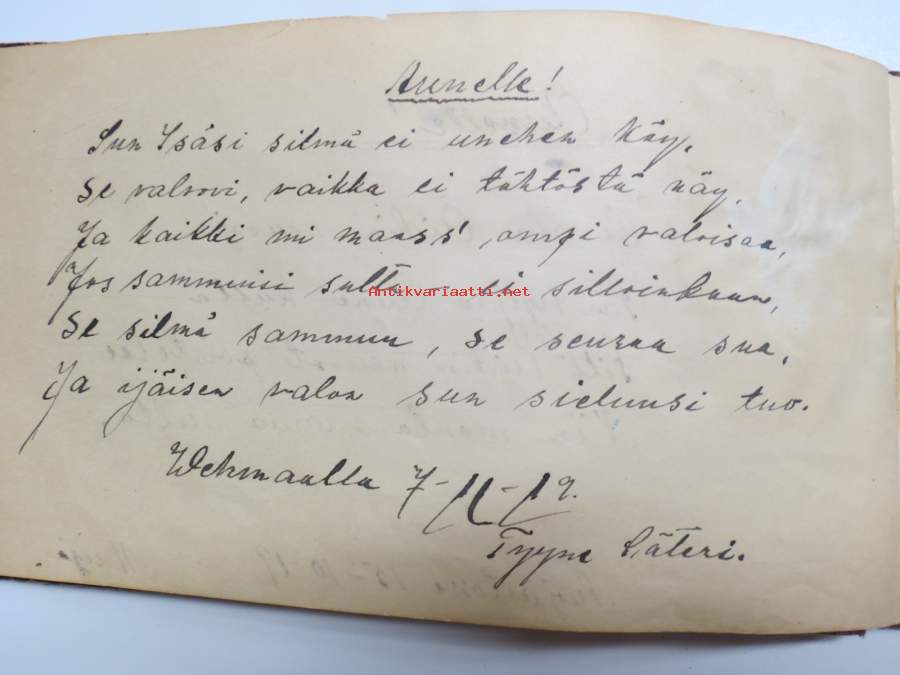 Aunelle!
Sun Isäsi silmä ei unehen käy,
Se valvovi, vaikka ei tähtöstä näy,
Ja kaikki mi maass' ompi valoisaa,
Jos sammuisi sulta, ei silloinkaan,
Se silmä sammuu, se seuraa sua,
Ja ijäisen valon sun sieluusi tuo.
Antikvariaatti.net
Wehmaalla 7-11-19.
Tyyne Säteri.